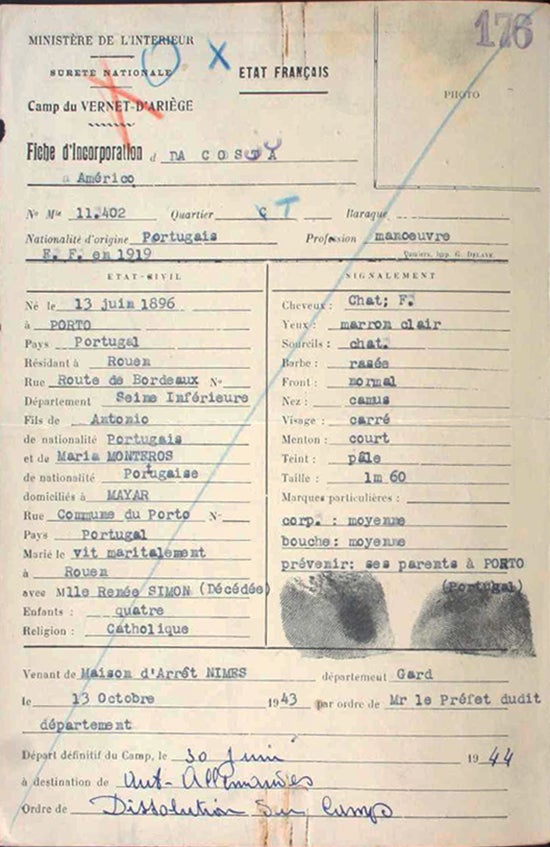 176
MINISTÈRE DE L'INTERIEUR
SURETÉ NATIONALE
Camp du VERNET-D'ARIÈGE
ETAT FRANÇAIS
PHOTO
Fiche d'Incorporation d DA COSTA
Américo
No Mle 11.402 Quartier C T Baraque
Nationalité d'origine Portugais Profession manoeuvre
E. F. en 1919
Pamiers, Imp. G. DELAYE
ETAT-CIVIL
Né le 13 juin 1896
à PORTO
Pays Portugal
Résidant à Rouen
Rue Route de Bordeaux No
Département Seine Inférieure
Fils de Antonio
de nationalité Portugais
et de Maria MONTEROS
de nationalité Portugaise
domiciliés à MAYAR
Rue Commune du Porto No
Pays Portugal
Marié le vit maritalement
à Rouen
avec Mlle Renée SIMON (Décédée)
Enfants : quatre
Religion : Catholique
SIGNALEMENT
Cheveux : Chat; F.
Yeux : marron clair
Sourcils : chat.
Barbe : rasée
Front : normal
Nez : camus
Visage : carré
Menton : court
Teint : pâle
Taille : 1m 60
Marques particulières :
corp. : moyenne
bouche: moyenne
prévenir: ses parents à PORTO
(Portugal)
Venant de Maison d'Arrêt NIMES département Gard
le 13 Octobre 1943 par ordre de Mr le Préfet dudit
département
Départ définitif du Camp, le 30 Juin 1944
à destination de Aut- Allemandes
Ordre de Dissolution du Camp